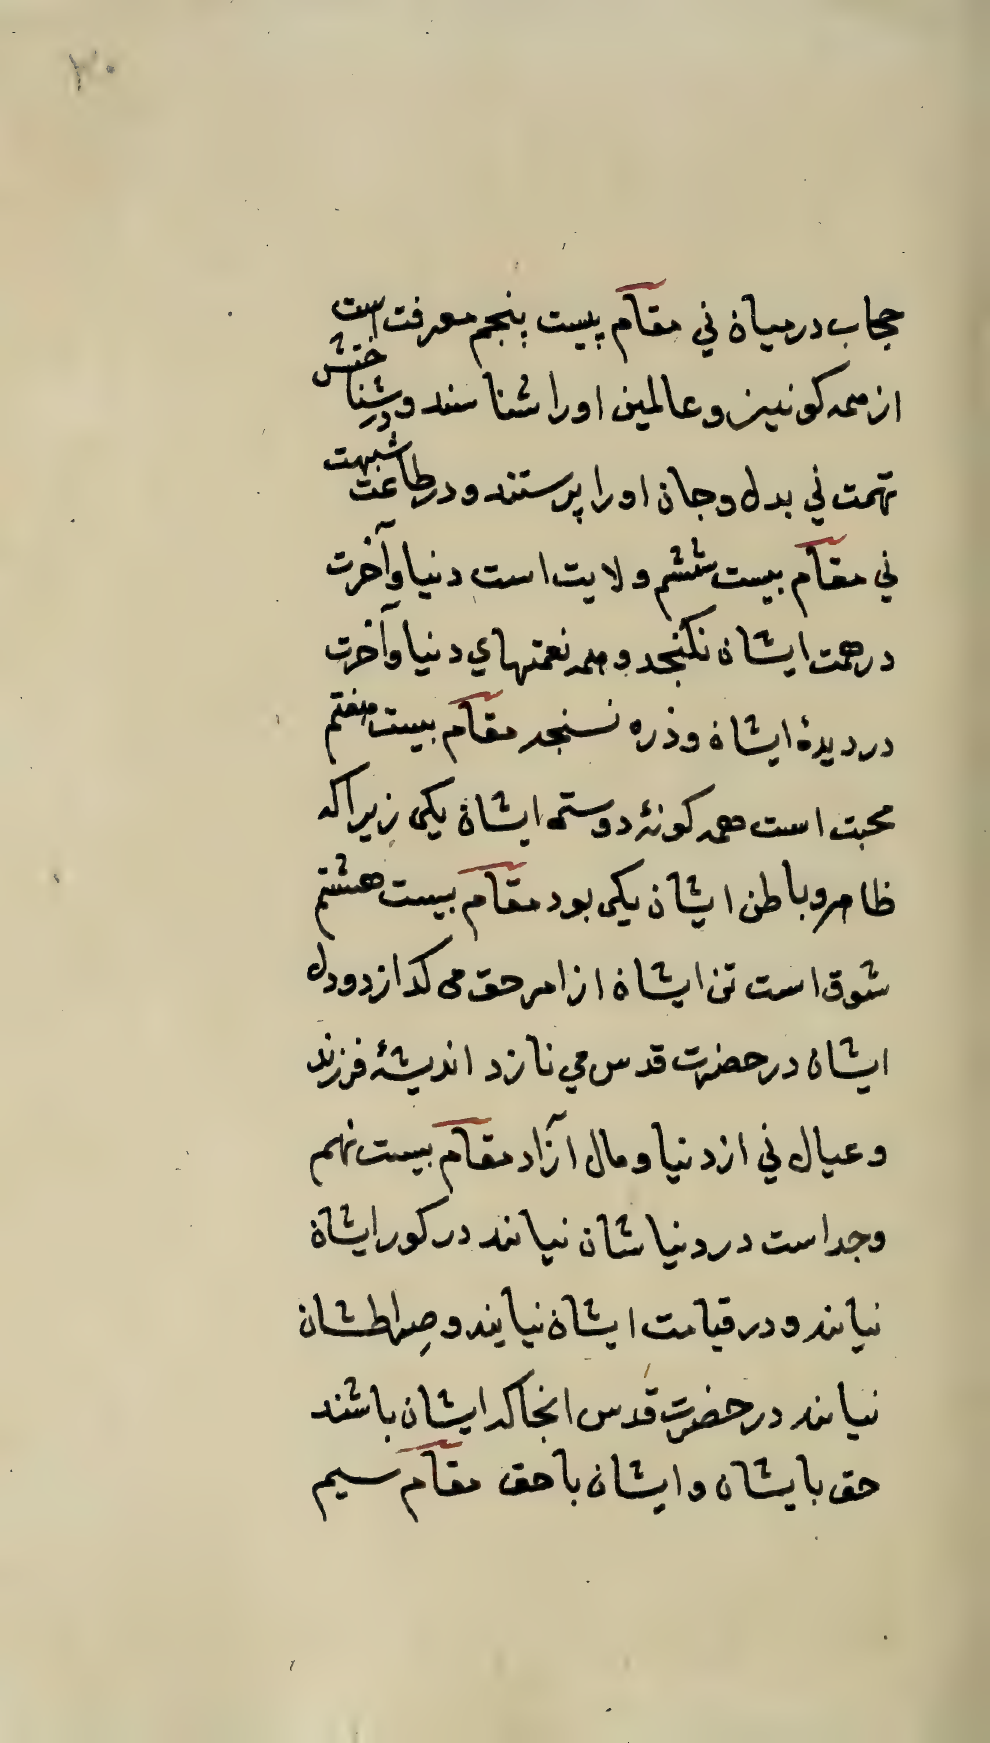 ۲۰
حجاب درمیان ني مقام پیست پنجم معرفت است
از همه کونین و عالمین او را شناسند و در شناختنش
تهمت ني بدل و جان او را پرستند و در طاعت شبهت
ني مقام بیست ششم ولایت است دنیا و آخرت
در همت ایشان نکنجد و همه نعمتهاي دنیا و آخرت
در دیدهٔ ایشان و ذره نسنجد مقام بیست هفتم
محبت است همه کونهٔ دوستی ایشان یکی زیراکه
ظاهر و باطن ایشان یکی بود مقام بیست هشتم
شوق است تن ایشان از امر حق می کدازد و دل
ایشان در حضرت قدس می نازد اندیشهٔ فرزند
و عیال ني از دنیا و مال آزاد مقام بیست نهم
وجد است در دنیا شان نیابند در کور ایشان
نیابند و در قیامت ایشان نیابند و صراطشان
نیابند در حضرت قدس انجاکه ایشان باشند
حق بایشان و ایشان باحق مقام سیم